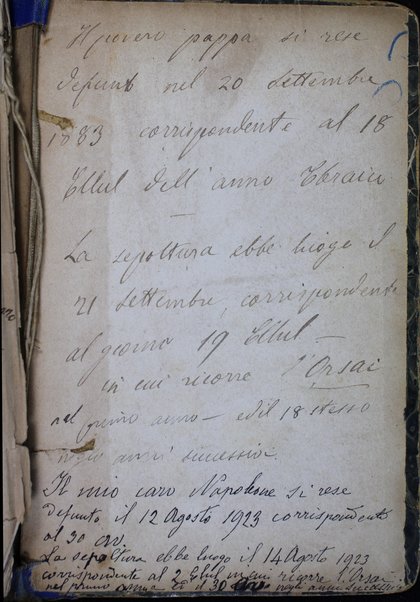 Il povero pappa si rese
defunto nel 20 Settembre
1883 corrispondente al 18
Ellul dell'anno Ebraico
La sepoltura ebbe luogo il
21 Settembre, corrispondente
al giorno 19 Ellul
in cui ricorre l'Orsai
nel primo anno – ed il 18 stesso
negli anni successivi.
Il mio caro Napoleone si rese
defunto il 12 Agosto 1923 corrispondente
al 30 av.
La sepoltura ebbe luogo il 14 Agosto 1923
corrispondente al 2 Ellul in cui ricorre l'Orsai
nel primo anno e il 30 negli anni successivi